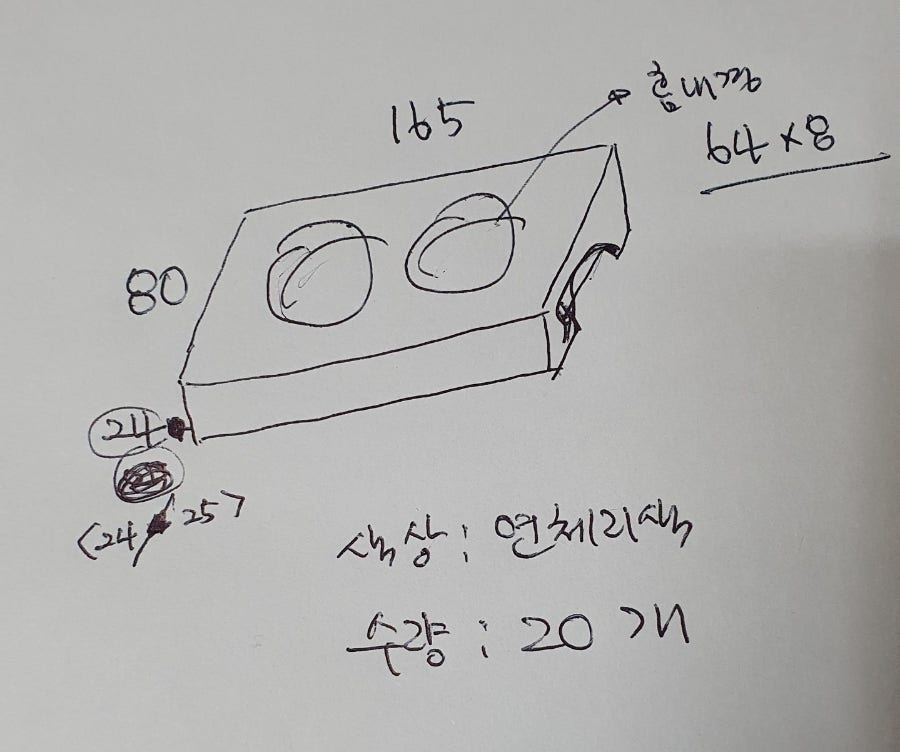 165
홈내경
64×8
80
24
<24/25>
색상: 연체리색
수량: 20개